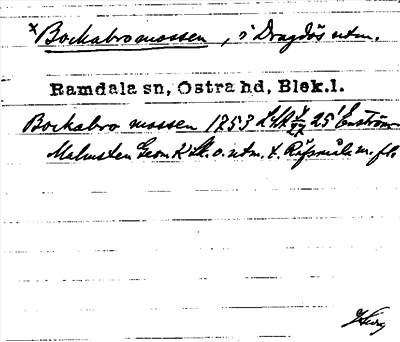 x Bockabromossen, i Dragdös utm.
Ramdala sn, Östra hd, Blek.l.
Bockabro mossen 1753 LSA 25 Enström
Malmsten Geom. K. o. utm. t. Råfsmåla m. fl.